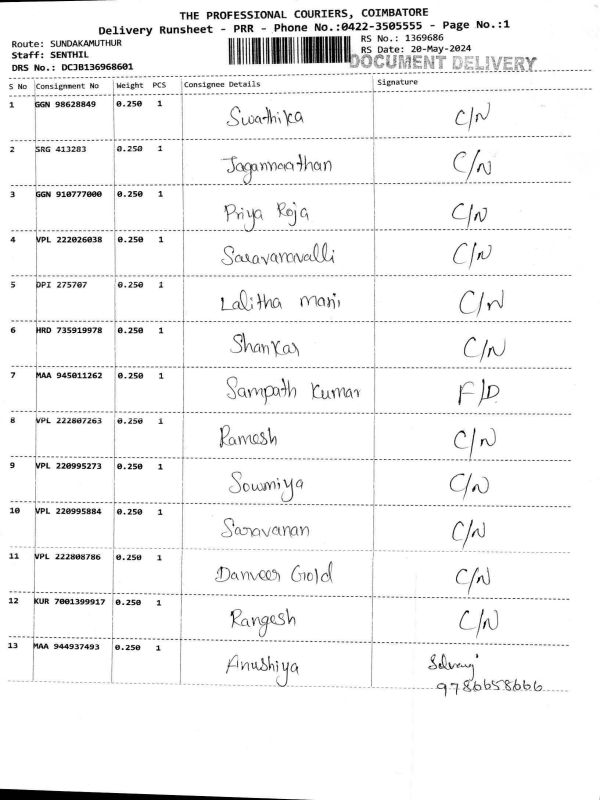 THE PROFESSIONAL COURIERS, COIMBATORE
Delivery Runsheet - PRR - Phone No.:0422-3505555 - Page No.:1
Route: SUNDAKAMUTHUR
RS No.: 1369686
Staff: SENTHIL
RS Date: 20-May-2024
DRS No.: DCJB136968601
DOCUMENT DELIVERY
S No Consignment No Weight PCS Consignee Details Signature
1 GGN 98628849 0.250 1 Swathika C/N
2 SRG 413283 0.250 1 Jagannaathan C/N
3 GGN 910777000 0.250 1 Priya Roja C/N
4 VPL 222026038 0.250 1 Saravanavalli C/N
5 DPI 275707 0.250 1 Lalitha mani C/N
6 HRD 735919978 0.250 1 Shankar C/N
7 MAA 945011262 0.250 1 Sampath Kumar F/D.
8 VPL 222807263 0.250 1 Ramesh C/N
9 VPL 220995273 0.250 1 Sowmiya C/N
10 VPL 220995884 0.250 1 Saravanan C/N
11 VPL 222808786 0.250 1 Danveer Gold C/N
12 KUR 7001399917 0.250 1 Rangesh C/N
13 MAA 944937493 0.250 1 Anushiya
9786658666